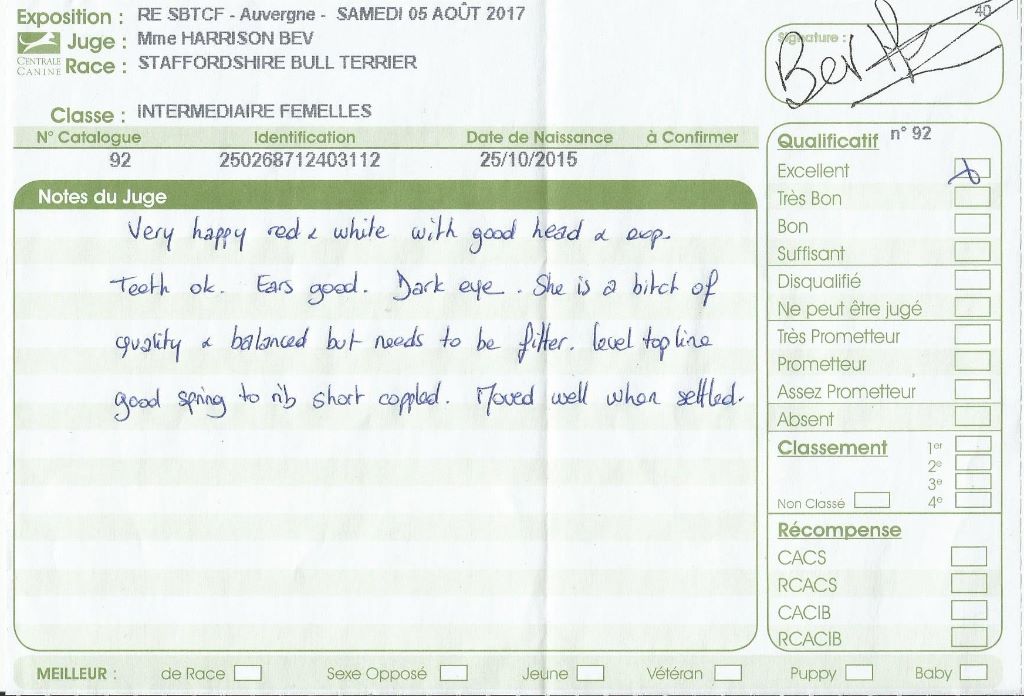 Exposition : RE SBTCF - Auvergne - SAMEDI 05 AOÛT 2017
40
Juge : Mme HARRISON BEV
Signature :
CENTRALE CANINE
Race : STAFFORDSHIRE BULL TERRIER
Bev H
Classe : INTERMEDIAIRE FEMELLES
N° Catalogue Identification Date de Naissance à Confirmer
92 250268712403112 25/10/2015
Notes du Juge
Very happy red & white with good head &
Teeth ok. Ears good. Dark eye. She is a bitch of
quality & balanced but needs to be fitter. level topline
good spring to rib short coppled. Moved well when settled.
Qualificatif n° 92
Excellent
Très Bon
Bon
Suffisant
Disqualifié
Ne peut être jugé
Très Prometteur
Prometteur
Assez Prometteur
Absent
Classement 1er
2e
3e
Non Classé 4e
Récompense
CACS
RCACS
CACIB
RCACIB
MEILLEUR : de Race Sexe Opposé Jeune Vétéran Puppy Baby